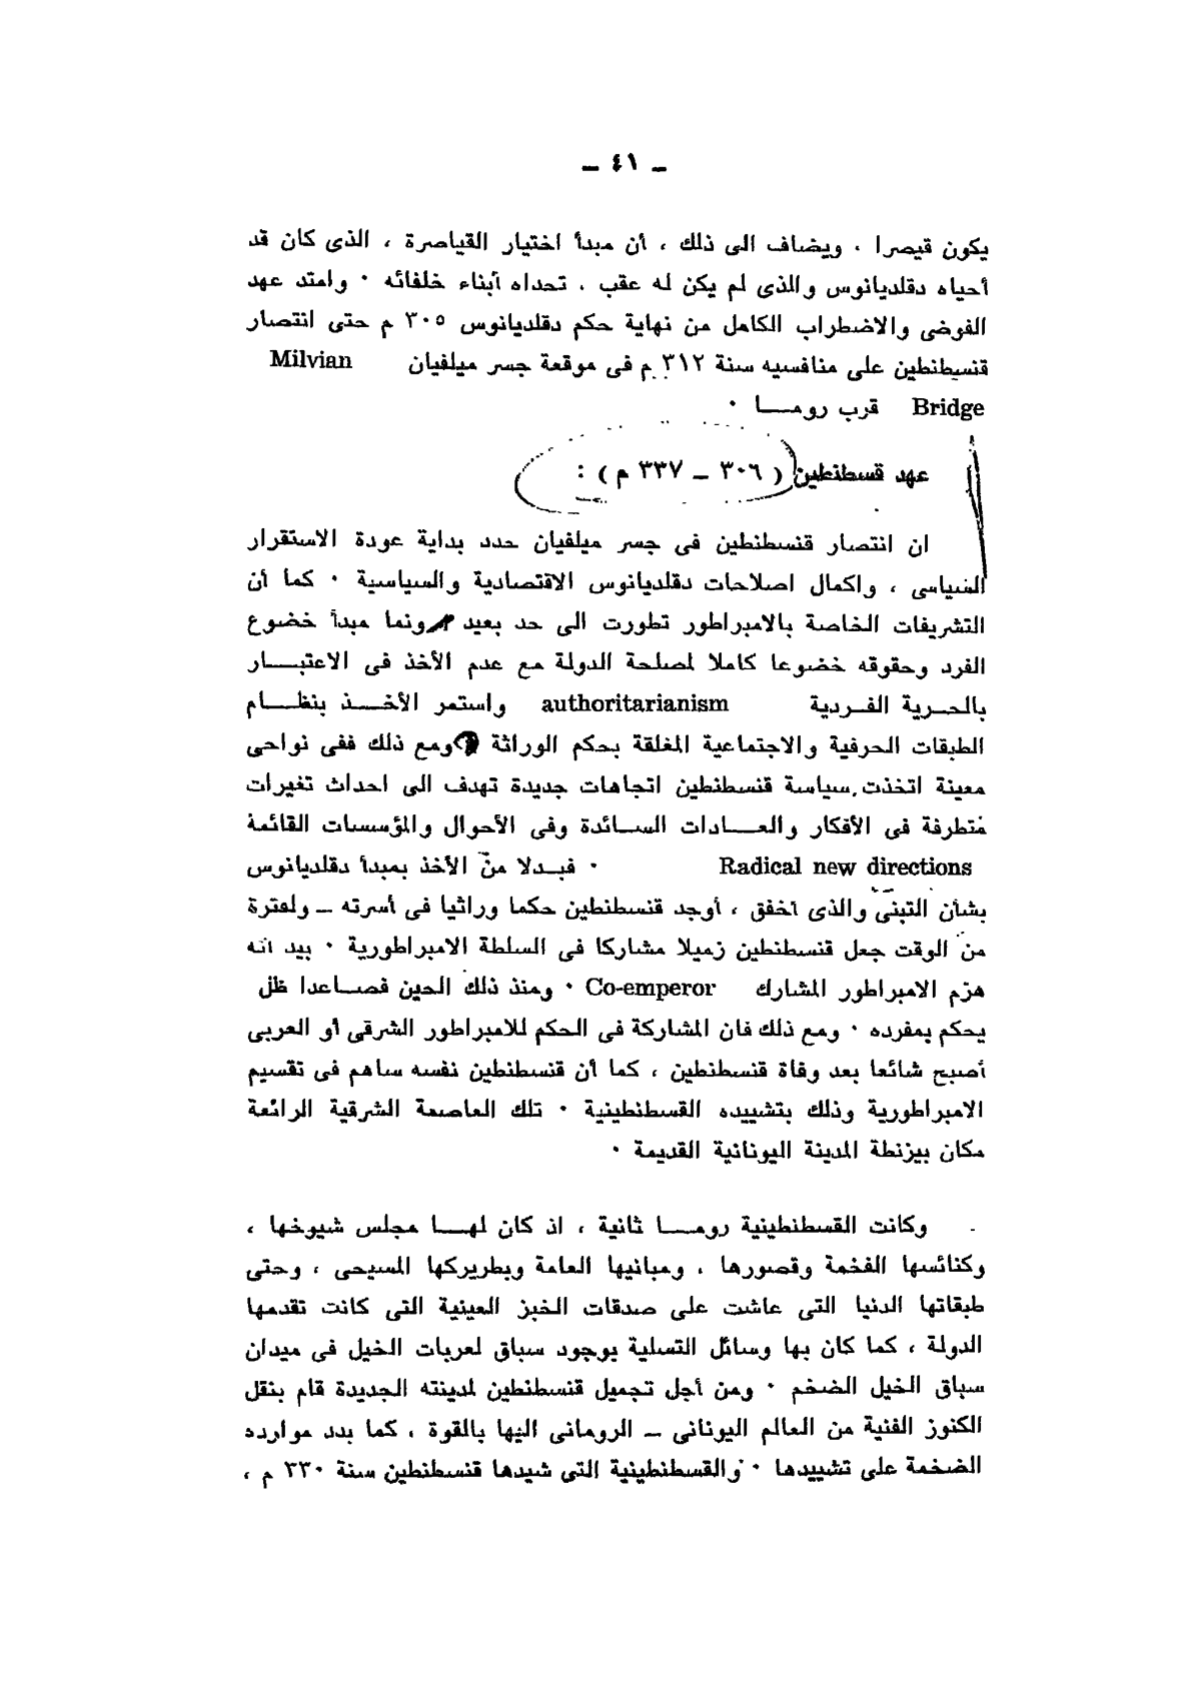 ـ ٤١ ـ
يكون قيصرا ، ويضاف الى ذلك ، أن مبدأ اختيار القياصرة ، الذى كان قد
أحياه دقلديانوس والذى لم يكن له عقب ، تحداه أبناء خلفائه ٠ وامتد عهد
الفوضى والاضطراب الكامل من نهاية حكم دقلديانوس ٣٠٥ م حتى انتصار
قنسطنطين على منافسيه سنة ٣١٢ م فى موقعة جسر ميلفيان Milvian
Bridge قرب رومـــا ٠
عهد قسطنطين ( ٣٠٦ ـ ٣٣٧ م ) :
ان انتصار قنسطنطين فى جسر ميلفيان حدد بداية عودة الاستقرار
السياسى ، واكمال اصلاحات دقلديانوس الاقتصادية والسياسية ٠ كما أن
التشريفات الخاصة بالامبراطور تطورت الى حد بعيد ونما مبدأ خضوع
الفرد وحقوقه خضوعا كاملا لمصلحة الدولة مع عدم الأخذ فى الاعتبـــار
بالحـرية الفـردية authoritarianism واستمر الأخـــذ بنظـــام
الطبقات الحرفية والاجتماعية المغلقة بحكم الوراثة ومع ذلك ففى نواحى
معينة اتخذت سياسة قنسطنطين اتجاهات جديدة تهدف الى احداث تغيرات
متطرفة فى الأفكار والعـــادات السـائدة وفى الأحوال والمؤسسات القائمة
Radical new directions ٠ فبـدلا من الأخذ بمبدأ دقلديانوس
بشأن التبنى والذى أخفق ، أوجد قنسطنطين حكما وراثيا فى أسرته ـ ولفترة
من الوقت جعل قنسطنطين زميلا مشاركا فى السلطة الامبراطورية ٠ بيد انه
هزم الامبراطور المشارك Co-emperor ٠ ومنذ ذلك الحين فصـاعدا ظل
يحكم بمفرده ٠ ومع ذلك فان المشاركة فى الحكم للامبراطور الشرقى أو الغربى
أصبح شائعا بعد وفاة قنسطنطين ، كما أن قنسطنطين نفسه ساهم فى تقسيم
الامبراطورية وذلك بتشييده القسطنطينية ٠ تلك العاصمة الشرقية الرائعة
مكان بيزنطة المدينة اليونانية القديمة ٠
وكانت القسطنطينية رومـــا ثانية ، اذ كان لهـــا مجلس شيوخها ،
وكنائسها الفخمة وقصورها ، ومبانيها العامة وبطريركها المسيحى ، وحتى
طبقاتها الدنيا التى عاشت على صدقات الخبز العينية التى كانت تقدمها
الدولة ، كما كان بها وسائل التسلية بوجود سباق لعربات الخيل فى ميدان
سباق الخيل الضخم ٠ ومن أجل تجميل قنسطنطين لمدينته الجديدة قام بنقل
الكنوز الفنية من العالم اليونانى ـ الرومانى اليها بالقوة ، كما بدد موارده
الضخمة على تشييدها ٠ والقسطنطينية التى شيدها قنسطنطين سنة ٣٣٠ م ،